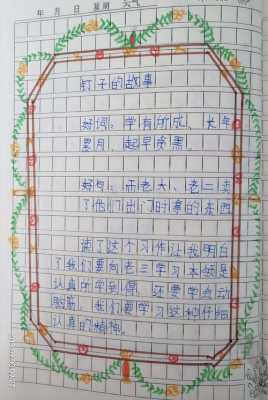 年 月 日 星期 天气
钉子的故事
好词：学有所成、长年
累月、起早贪黑。
好句：而老大、老二卖
了他们出门时拿的东西
读了这个习作让我明白
了我们要向老三学习本领是
认真所学到,还要学会动
脑筋。我们要学习这种仔细
认真的精神。